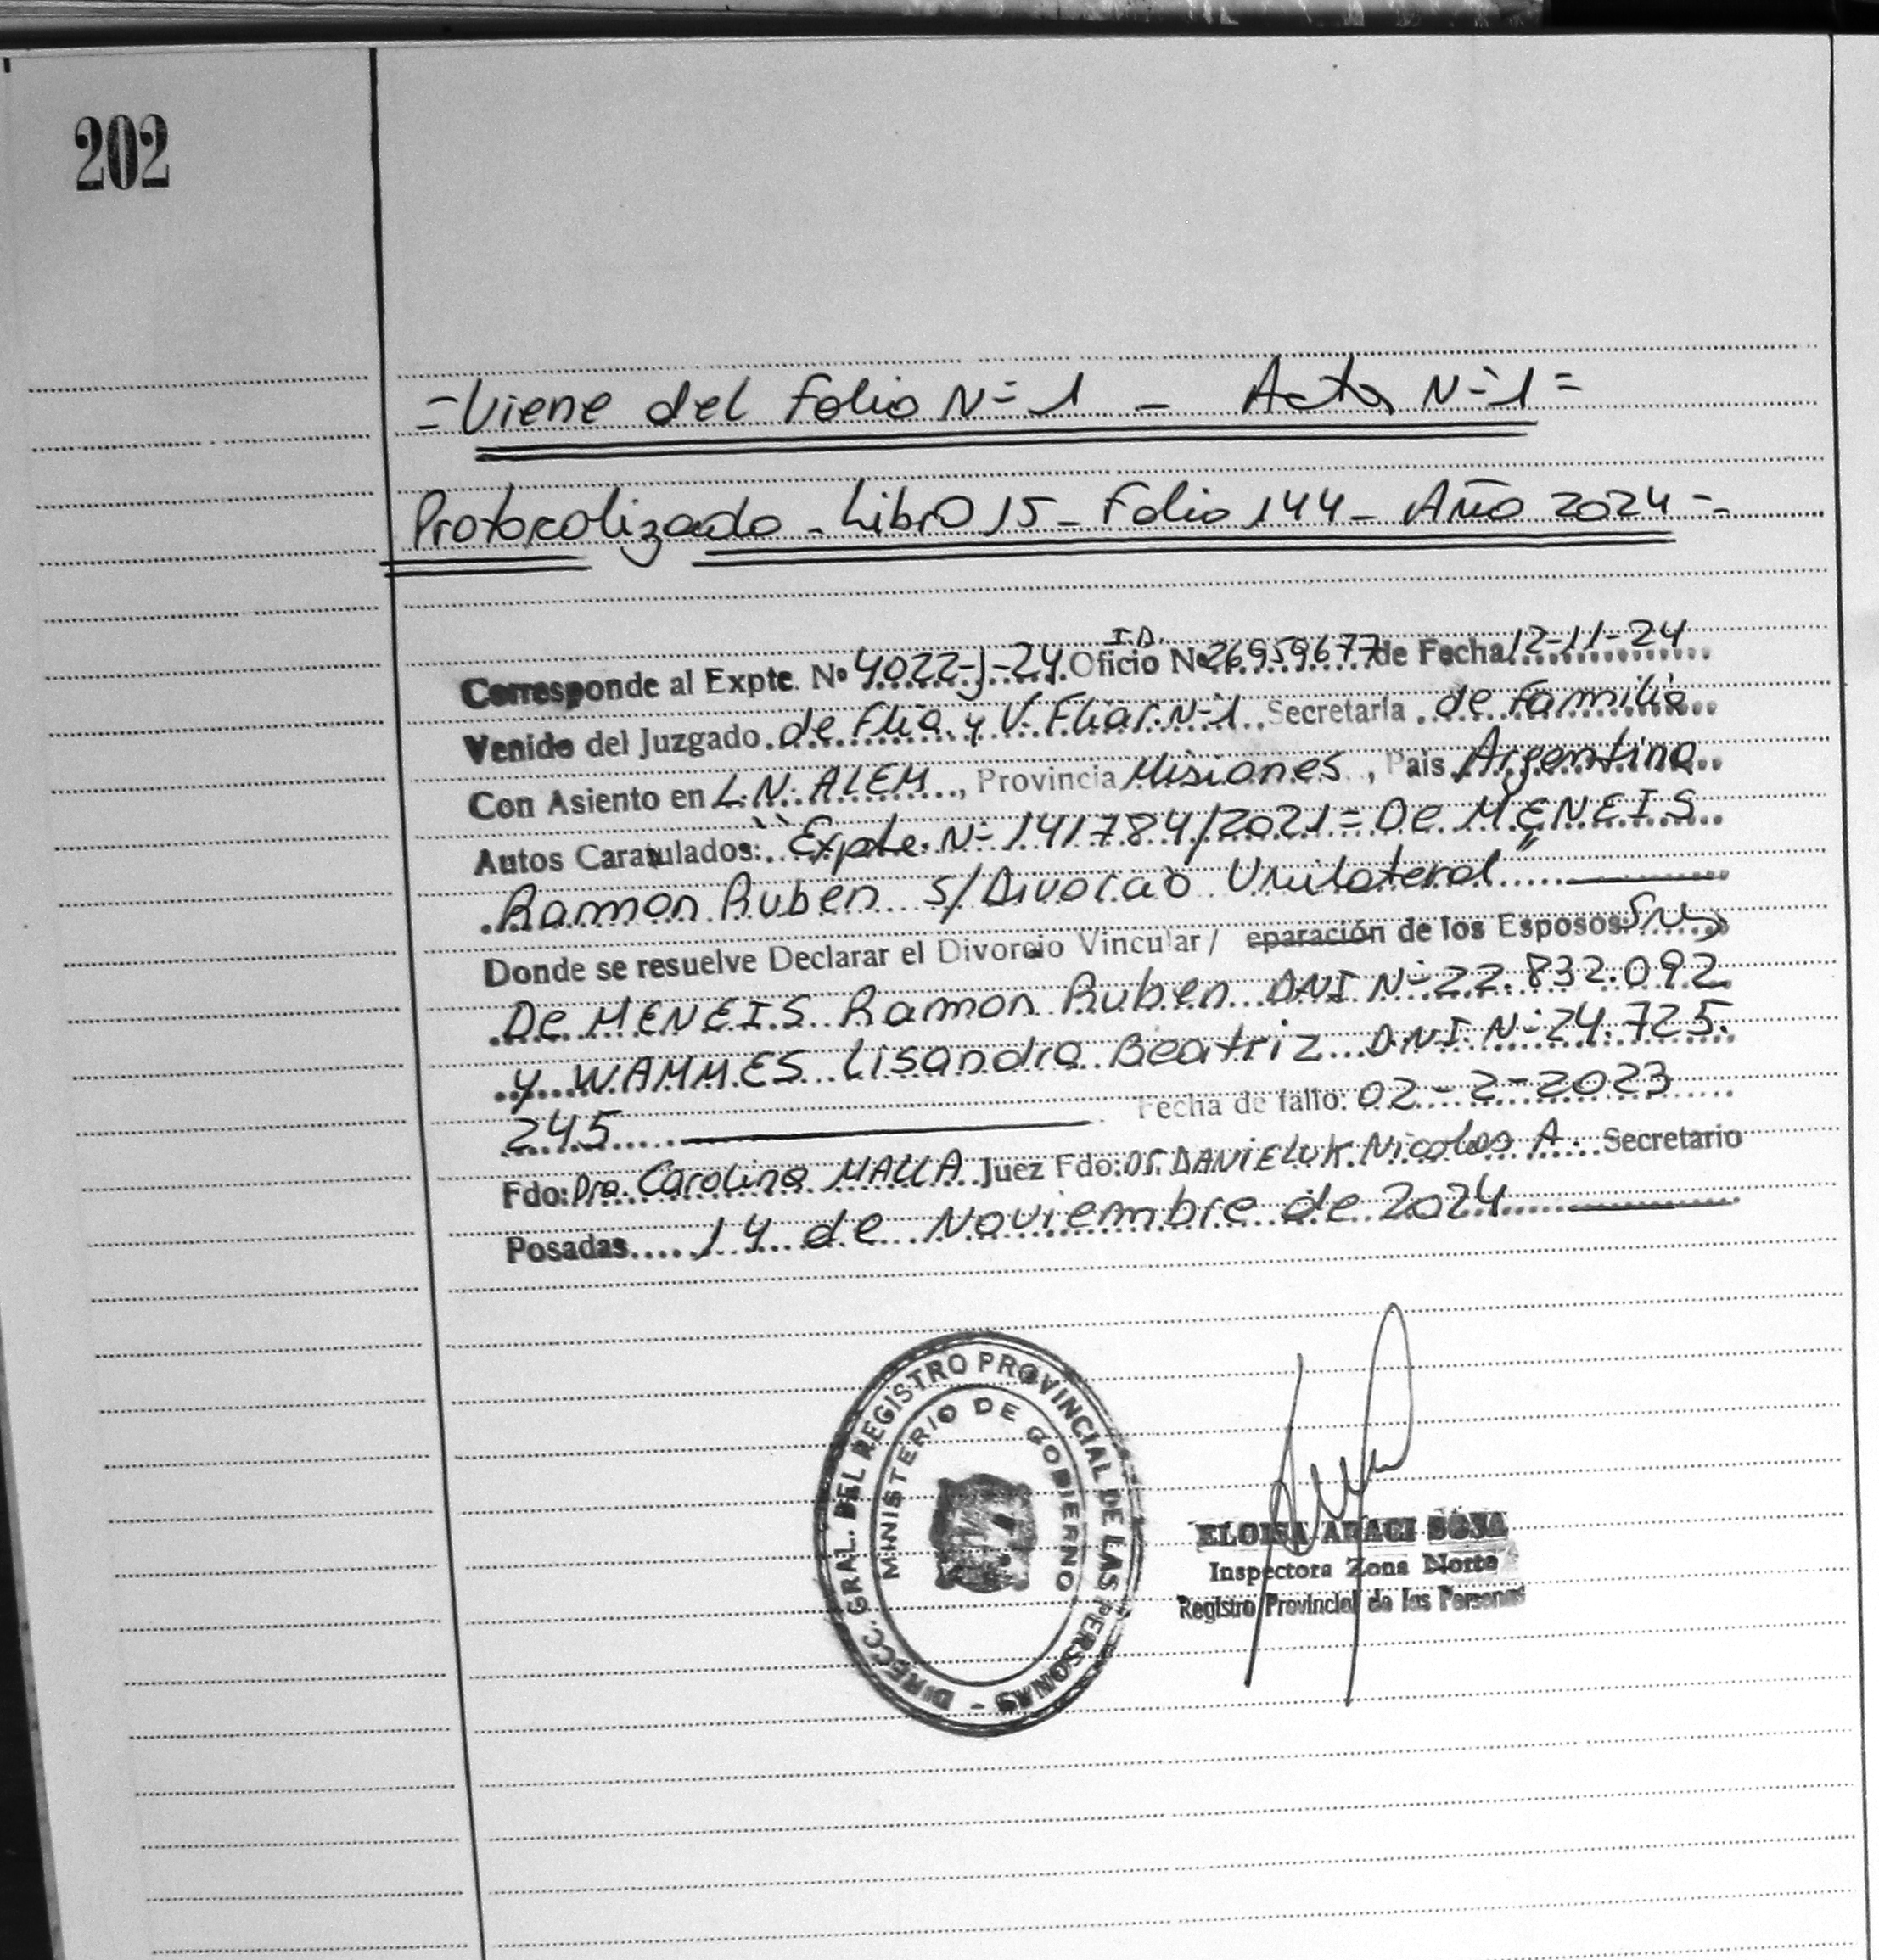 202
=Viene del folio N=1 - Acta N=1=
Protocolizado - Libro 15 - Folio 144 - Año 2024 =-
I.D.
Corresponde al Expte. Nº 4022-J-24 Oficio Nº 26959677 de Fecha 12-11-24
Venido del Juzgado de Flia. y V. Fliar. N=1 Secretaria de familia
Con Asiento en L.N. ALEM, Provincia Misiones, Pais Argentina
Autos Caratulados: "Expte. N= 141784/2021= De MENEIS
Ramon Ruben s/Divorcio Unilateral"
Donde se resuelve Declarar el Divorcio Vincular / eparación de los Esposos:
De MENEIS Ramon Ruben DNI N=22.832.092
y WAMMES Lisandra Beatriz DNI N=24.725.
245 Fecha de fallo: 02-2-2023
Fdo: Dra. Carolina MALLA Juez Fdo: Dr. DANIELUK Nicolas A. Secretario
Posadas 14 de Noviembre de 2024
DIRECC. GRAL. DEL REGISTRO PROVINCIAL DE LAS PERSONAS -
MINISTERIO DE GOBIERNO
ELOISA ARACI SOSA
Inspectora Zona Norte
Registro Provincial de las Personas